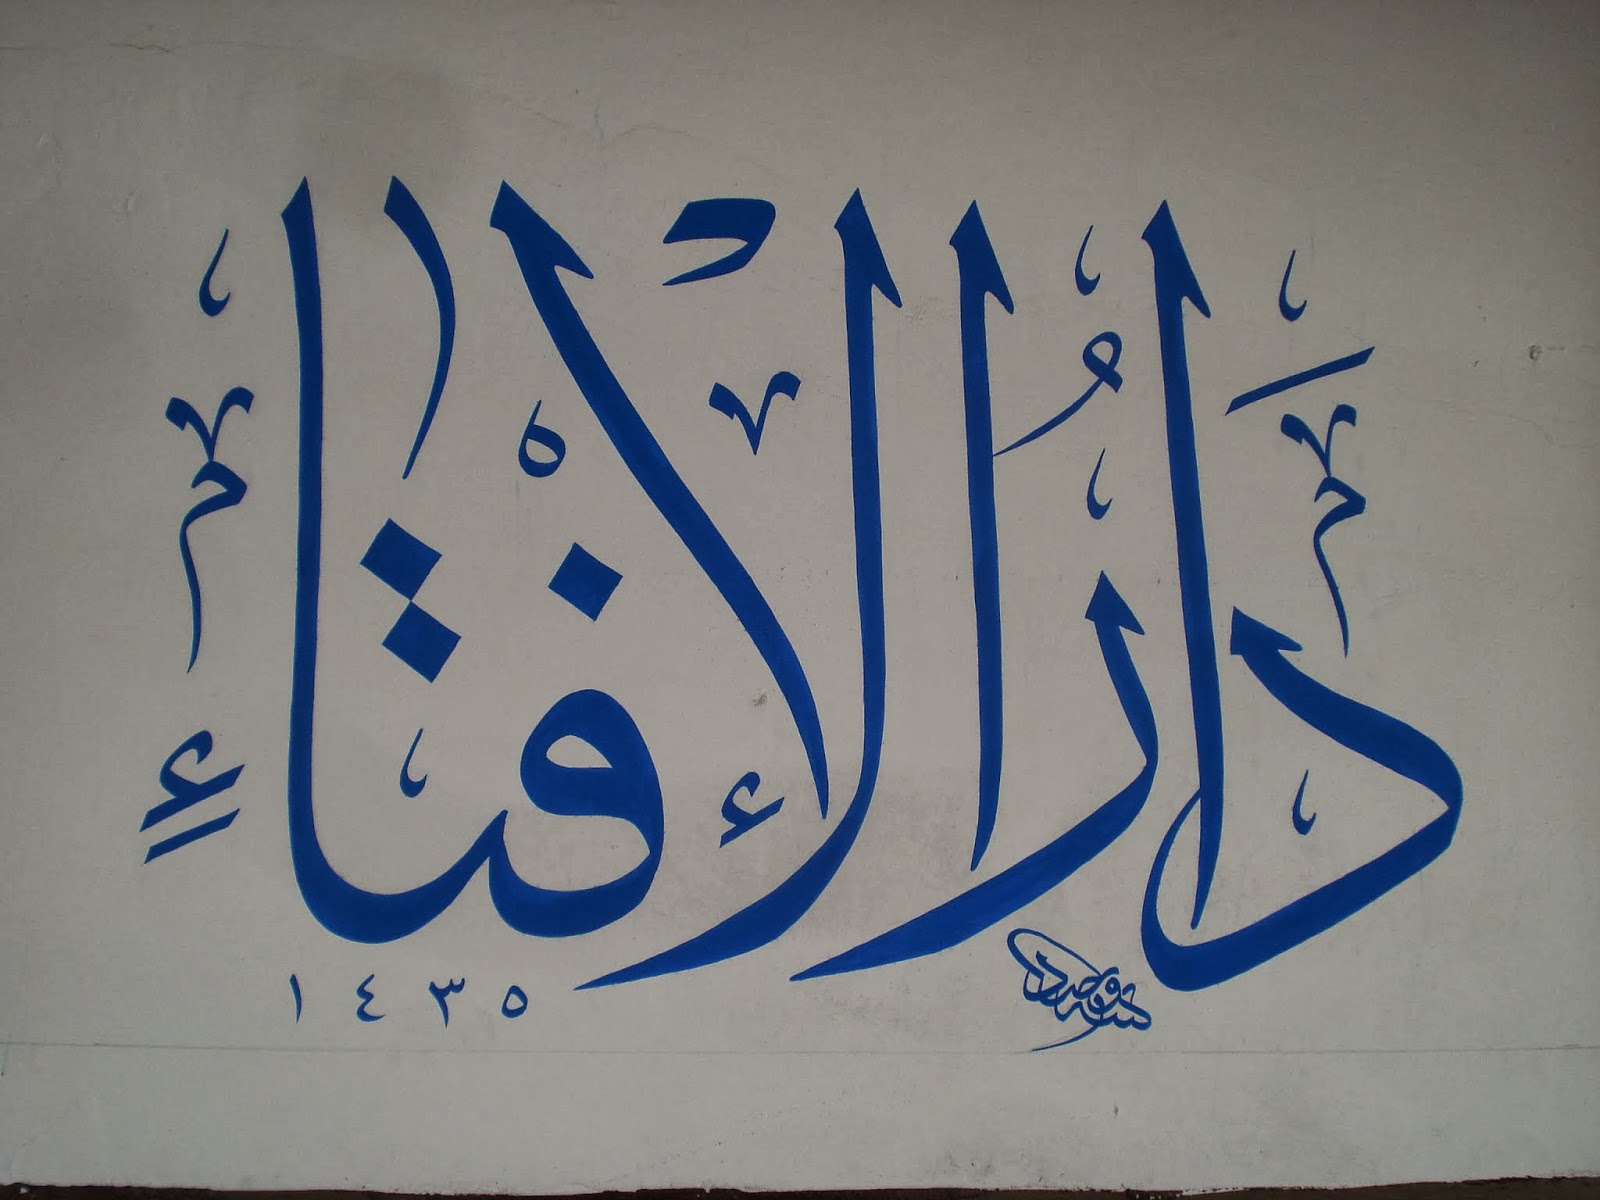 دَارُ الْإِفْتَاءِ
١٤٣٥